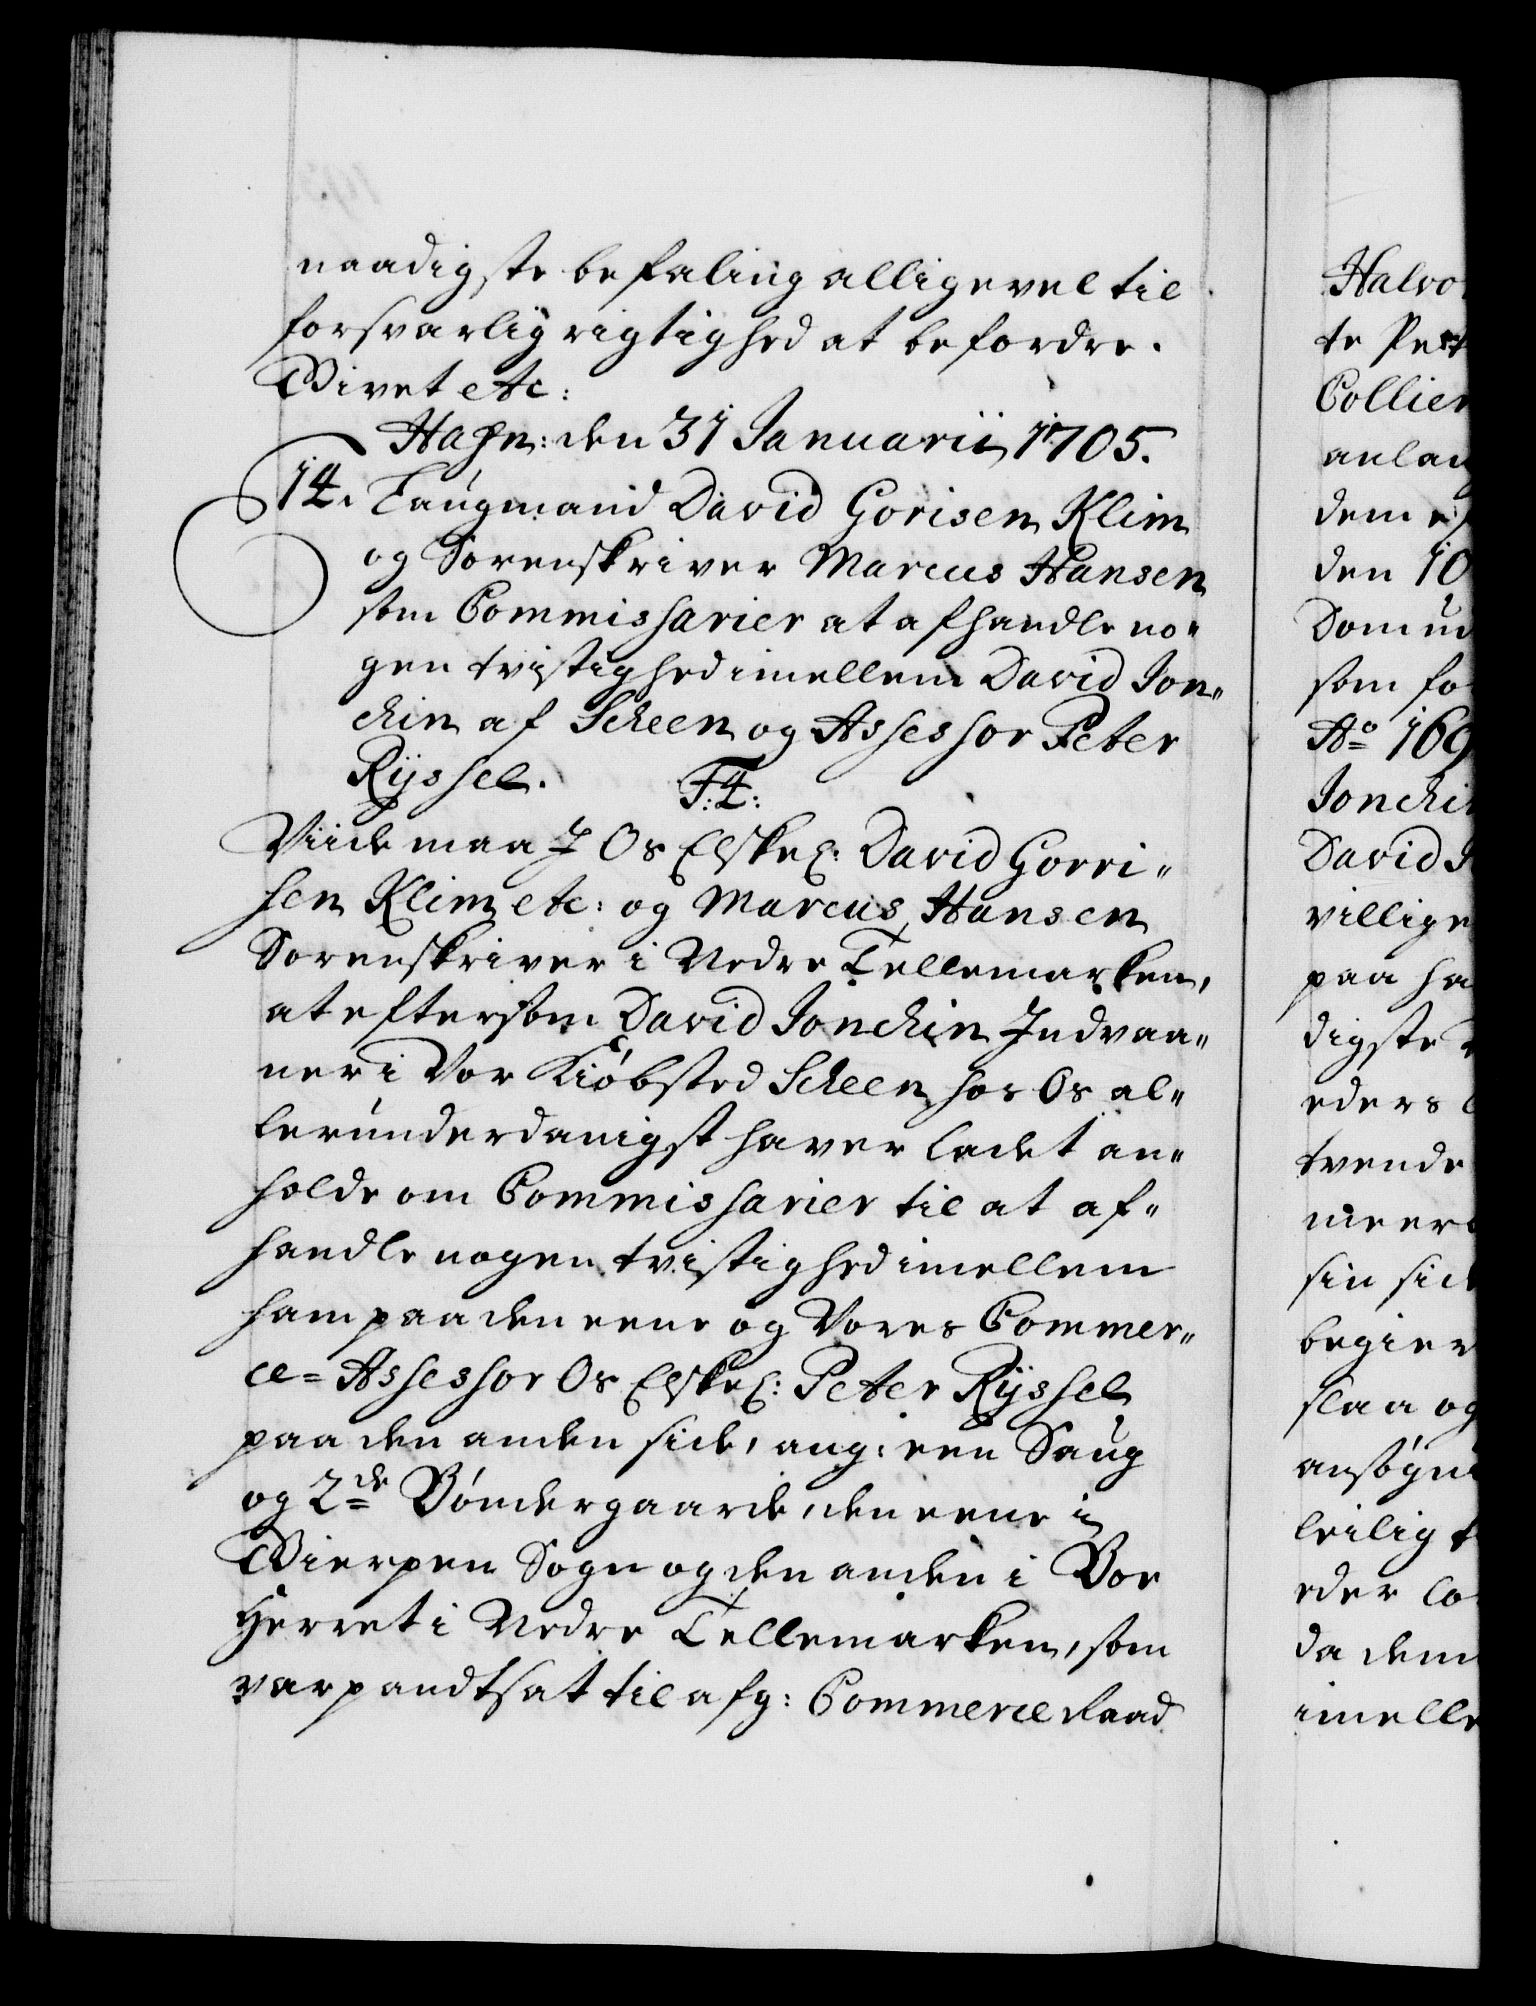 naadigste befaling alligevel til
forsvarlig rigtighed at befordre.
Givet etc:
Hafn: den 31 Januarii 1705.
14. Laugmand David Gorisen Klim
og Sorenskriver Marcus Hansen
som Commissarier at afhandle no„
gen tvistighed imellem David Jon„
chin af Scheen og Assessor Peter
Rÿssel. F:4:
Viide maa I Os Elskel: David Gorri„
sen Klim etc: og Marcus Hansen
Sorenskriver i Nedre Tellemarken,
at eftersom David Jonchin Indvaa„
ner i Vor Kiöbsted Scheen hos Os al„
lerunderdanigst haver ladet an„
holde om Commissarier til at af„
handle nogen tvistighed imellem
ham paa den eene og Vores Commer„
ce= Assessor Os Elskel: Peter Rÿssel
paa den anden side, ang: een Saug
og 2de Böndergaarde, den eene i
Gierpen Sogn og den anden i Bøe
Herret i Nedre Tellemarken, som
var pandtsat til afg: Commerce Raad
Halvo
te Pet
Collier
anlan
dem ef
den 10
Dom ud
som fo
Ao 169
Jonchi
David
villige
paa ha
digste
eders
tvende
meer
sin side
begier
slaa og
ansøgni
leilig t
eder
da dem
imelle